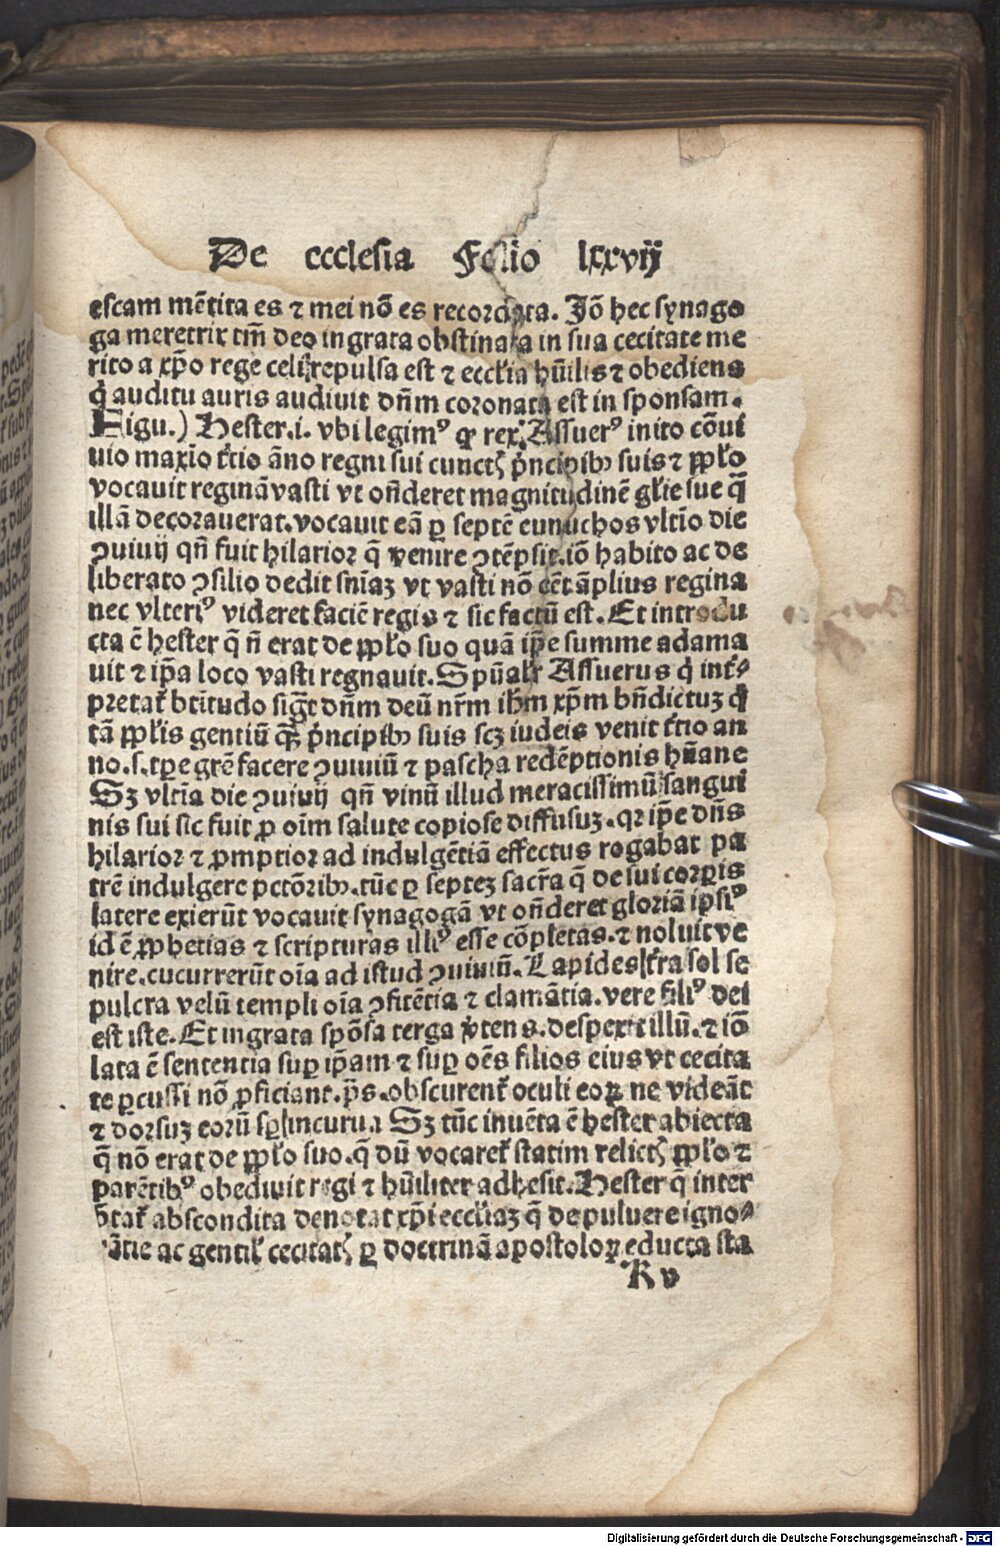 De ecclesia Folio lxxvij
escam mētita es ⁊ mei nō es recordata. Jō hec synago
ga meretrix tm̄ deo ingrata obstinata in sua cecitate me
rito a xp̄o rege celi repulsa est ⁊ eccl̄ia hūilis ⁊ obediens
q̇ auditu auris audiuit dn̄m coronata est in sponsam.
Figu.) Hester.i. vbi legimꝰ ꝙ rex Assuerꝰ inito cōui
uio maxīo t̄cio āno regni sui cunctꝭ p̄ncipibꝰ suis ⁊ pp̄lo
vocauit reginā vasti vt on̄deret magnitudinē gl̄ie sue q̄
illā decorauerat. vocauit eā ꝑ septē eunuchos vltīo die
ꝯuiuij qn̄ fuit hilarior q̄ venire ꝯtēpsit. iō habito ac de
liberato ꝯsilio dedit sn̄iaꝫ vt vasti nō eēt āplius regina
nec vlteriꝰ videret faciē regis ⁊ sic factū est. Et introdu
cta ē hester q̄ n̄ erat de pp̄lo suo quā ip̄e summe adama
uit ⁊ ip̄a loco vasti regnauit. Spūalr̄ Assuerus q̇ int̄⸗
pretat̄ bt̄itudo siḡt dn̄m deū nr̄m ih̄m xp̄m bn̄dictuꝫ q̇
tā pp̄lis gentiū qꝫ p̄ncipibꝰ suis scꝫ iudeis venit t̄tio an
no.s.tp̄e gr̄e facere ꝯuiuiū ⁊ pascha redēptionis hūane
Sꝫ vltīa die ꝯuiuij qn̄ vinū illud meracissimū sangui
nis sui sic fuit ꝓ oīm salute copiose diffusuꝫ. qꝛ ip̄e dn̄s
hilarior ⁊ ꝓmptior ad indulgētiā effectus rogabat pa
trē indulgere pctōribꝰ. tūc ꝑ septeꝫ sacr̄a q̄ de sui corꝑis
latere exierūt vocauit synagogā vt on̄deret gloriā ipsiꝰ
id ē ꝓphetias ⁊ scripturas illiꝰ esse cōpletas. ⁊ noluit ve
nire. cucurrerūt oīa ad istud ꝯuiuiū. Lapides t̄ra sol se
pulcra velū templi oīa ꝯfitētia ⁊ clamātia. vere filiꝰ dei
est iste. Et ingrata spōsa terga v̄tens. despexit illū. ⁊ iō
lata ē sententia suꝑ ip̄am ⁊ suꝑ oēs filios eius vt cecita
te ꝑcussi nō ꝓficiant. p̄s. obscurent̄ oculi eoꝝ ne videāt
⁊ dorsuꝫ eorū sꝑ incurua Sꝫ tūc inuēta ē hester abiecta
q̄ nō erat de pp̄lo suo. q̄ dū vocaret̄ statim relictꝭ pp̄lo ⁊
parētibꝰ obediuit regi ⁊ hūiliter adhesit. Hester q̄ inter
p̄tat̄ abscondita denotat xp̄i eccl̄iaꝫ q̄ de puluere igno⸗
rātie ac gentil̄ cecitatꝭ ꝑ doctrinā apostoloꝝ educta sta
K v
Digitalisierung gefördert durch die Deutsche Forschungsgemeinschaft - DFG